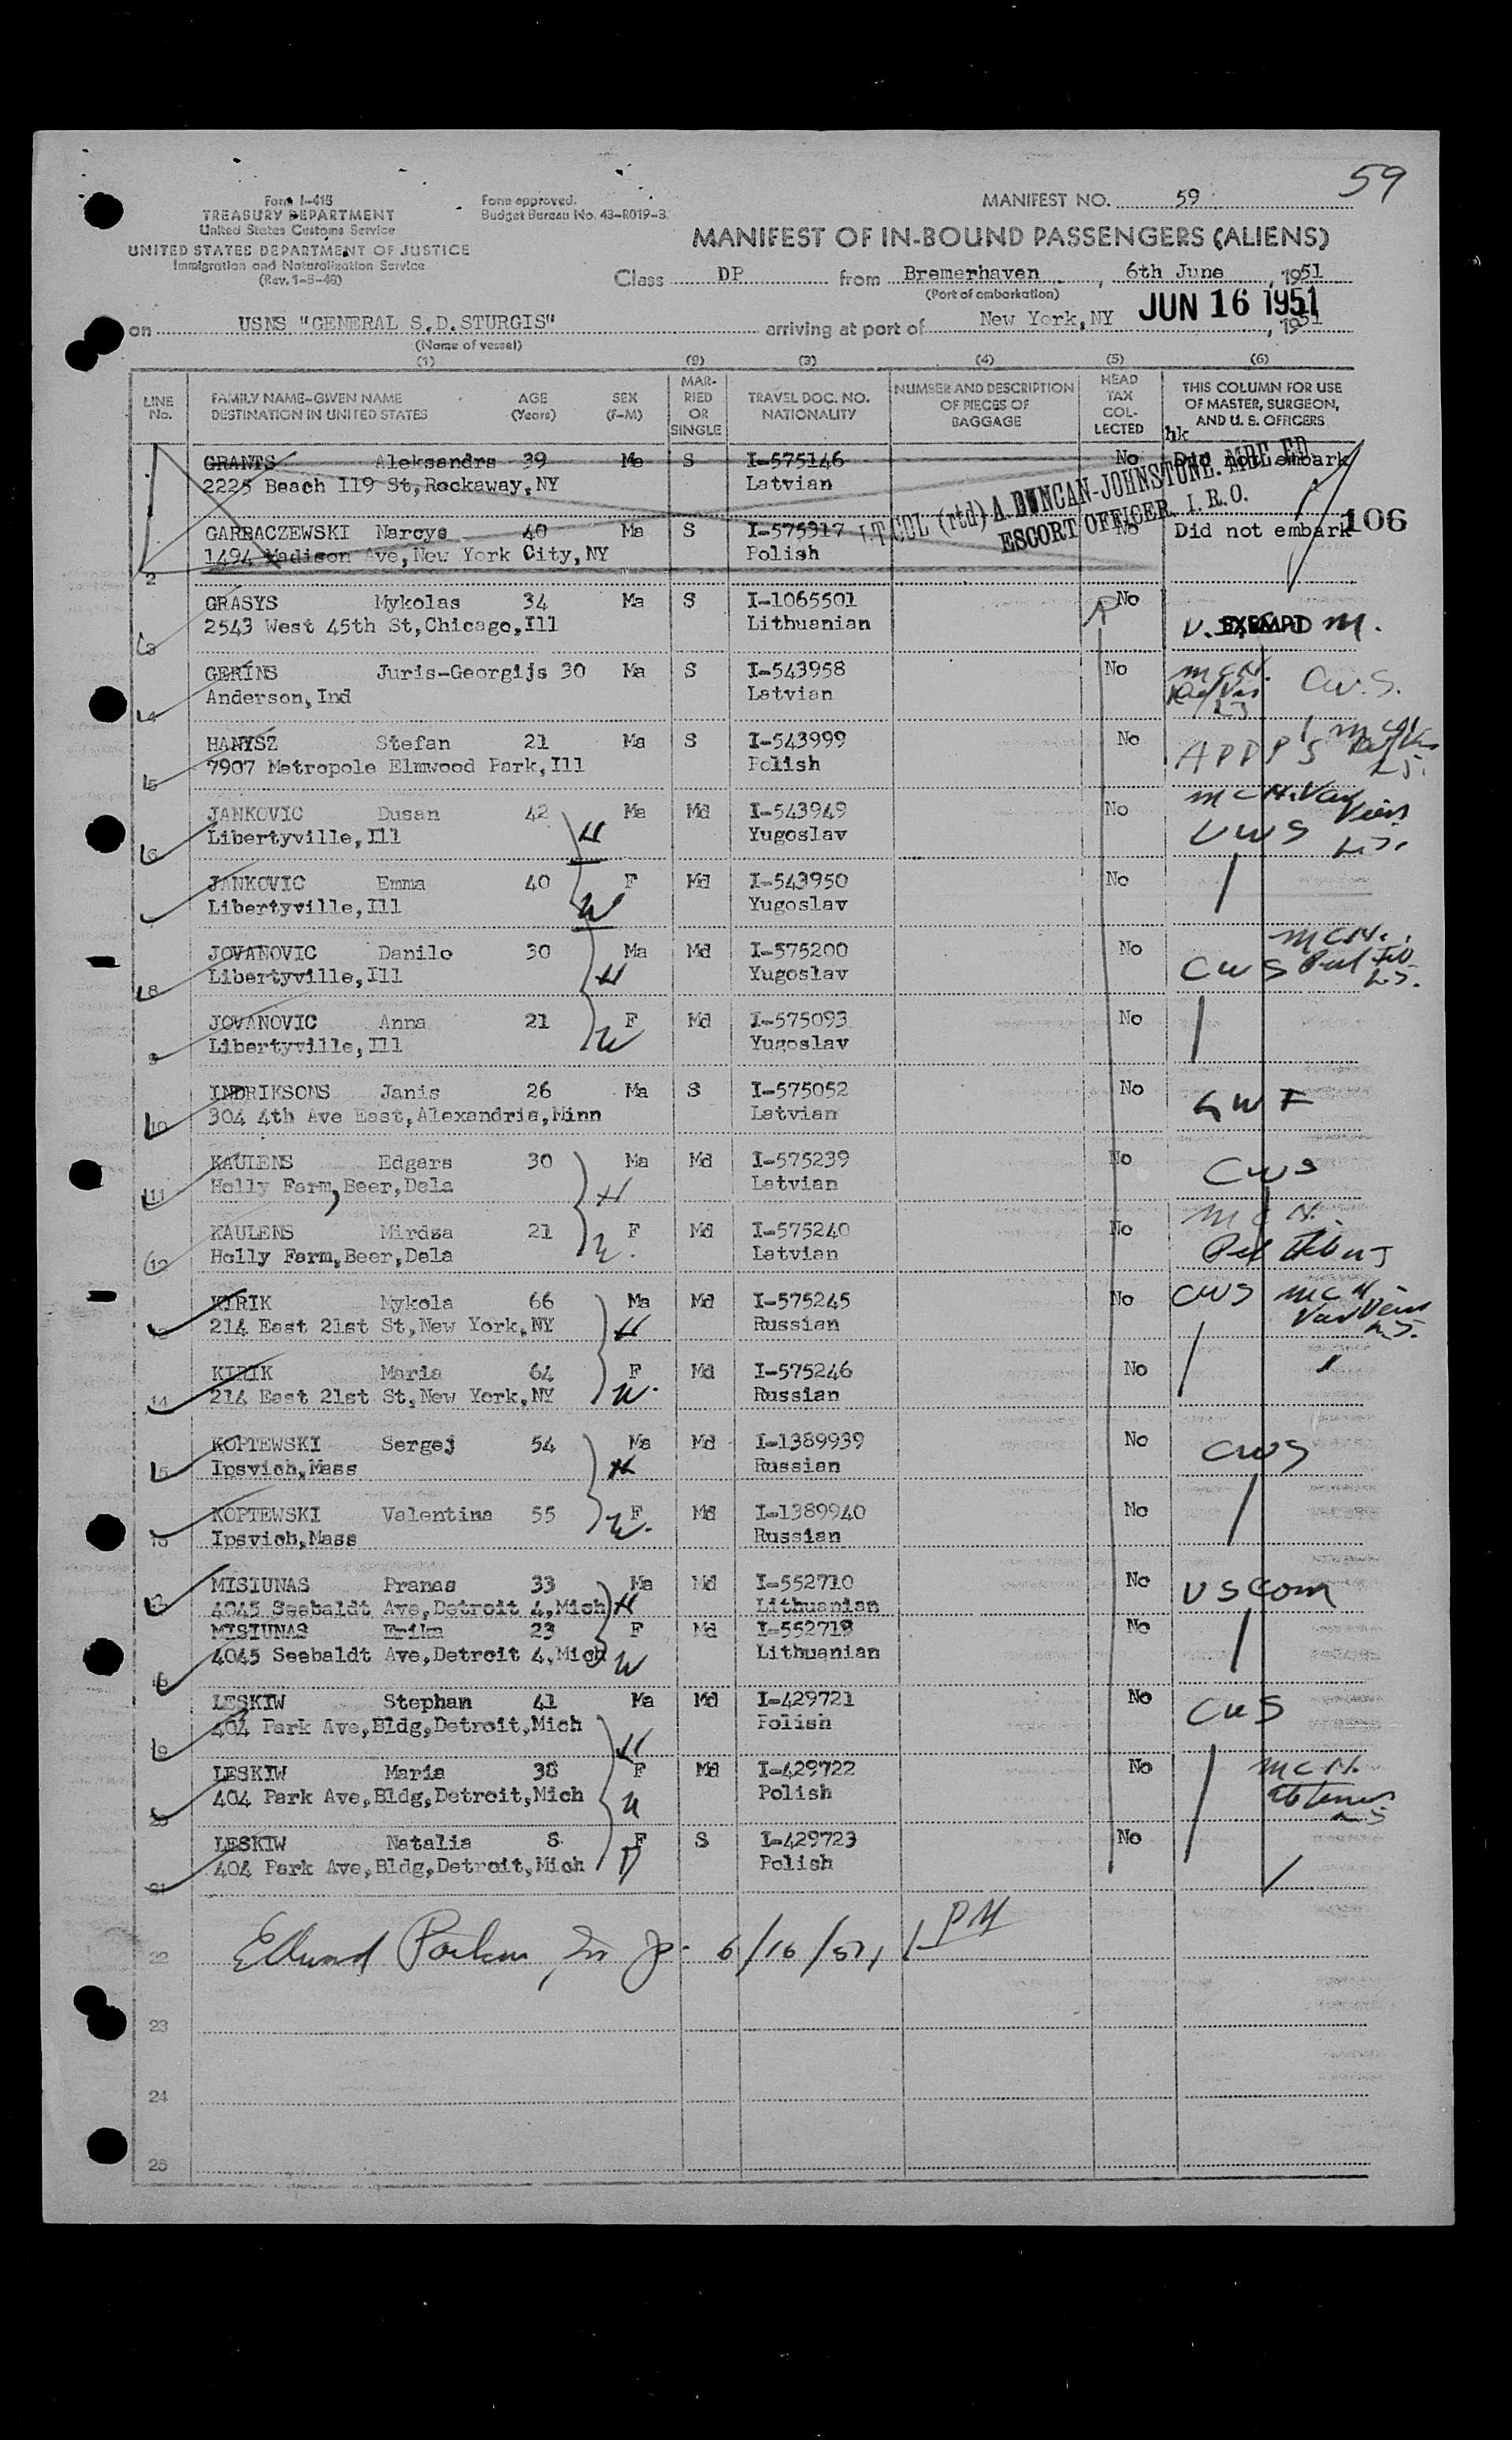 59
Form I-418
TREASURY DEPARTMENT
United States Customs Service
UNITED STATES DEPARTMENT OF JUSTICE
Immigration and Naturalization Service
(Rev. 1-5-48)
Form approved.
Budget Bureau No. 43-R019-3.
MANIFEST NO. 59
MANIFEST OF IN-BOUND PASSENGERS (ALIENS)
Class DP from Bremerhaven, 6th June, 1951
(Port of embarkation)
on USNS "GENERAL S.D.STURGIS" arriving at port of New York,NY JUN 16 1951, 1951
(Name of vessel)
(1) (2) (3) (4) (5) (6)
LINE No. FAMILY NAME-GIVEN NAME DESTINATION IN UNITED STATES AGE (Years) SEX (F-M) MARRIED OR SINGLE TRAVEL DOC. NO. NATIONALITY NUMBER AND DESCRIPTION OF PIECES OF BAGGAGE HEAD TAX COLLECTED THIS COLUMN FOR USE OF MASTER, SURGEON, AND U. S. OFFICERS
hk
GRANTS Aleksandrs 39 Ma S I-575146 No Did not embark
2225 Beach 119 St,Rockaway,NY Latvian
LT.COL (rtd) A DUNCAN-JOHNSTONE. MBE. ED
ESCORT OFFICER. I.R.O.
106
GARBACZEWSKI Narcys 40 Ma S I-575317 No Did not embark
2 1494 Madison Ave,New York City,NY Polish
GRASYS Mykolas 34 Ma S I-1065501 No
3 2543 West 45th St,Chicago,Ill Lithuanian EXEMPT
GERINS Juris-Georgijs 30 Ma S I-543958 No McN. CWS.
4 Anderson,Ind Latvian
HANYSZ Stefan 21 Ma S I-543999 No
5 7907 Metropole Elmwood Park,Ill Polish
JANKOVIC Dusan 42 H Ma Md I-543949 No
6 Libertyville,Ill Yugoslav
JANKOVIC Emma 40 W F Md I-543950 No
Libertyville,Ill Yugoslav
JOVANOVIC Danilo 30 H Ma Md I-575200 No McN.
8 Libertyville,Ill Yugoslav CWS
JOVANOVIC Anna 21 W F Md I-575093 No
9 Libertyville,Ill Yugoslav
INDRIKSONS Janis 26 Ma S I-575052 No
10 304 4th Ave East,Alexandria,Minn Latvian
KAULENS Edgars 30 H Ma Md I-575239 No CWS
11 Holly Farm,Beer,Dela Latvian
KAULENS Mirdza 21 W. F Md I-575240 No McN.
12 Holly Farm,Beer,Dela Latvian
KIRIK Mykola 66 H Ma Md I-575245 No CWS McN
13 214 East 21st St,New York,NY Russian
KIRIK Maria 64 W. F Md I-575246 No
14 214 East 21st St,New York,NY Russian
KOPTEWSKI Sergej 54 H Ma Md I-1389939 No CWS
15 Ipsvich,Mass Russian
KOPTEWSKI Valentina 55 W. F Md I-1389940 No
Ipsvich,Mass Russian
MISIUNAS Pranas 33 H Ma Md I-552710 No US Com
4045 Seebaldt Ave,Detroit 4,Mich Lithuanian
MISIUNAS Erika 23 W F Md I-552719 No
18 4045 Seebaldt Ave,Detroit 4,Mich Lithuanian
LESKIW Stephan 41 H Ma Md I-429721 No CWS
19 404 Park Ave,Bldg,Detroit,Mich Polish
LESKIW Maria 38 W F Md I-429722 No McN.
20 404 Park Ave,Bldg,Detroit,Mich Polish
LESKIW Natalia 8 D F S I-429723 No
21 404 Park Ave,Bldg,Detroit,Mich Polish
22 6/16/51, 1 PM
23
24
25